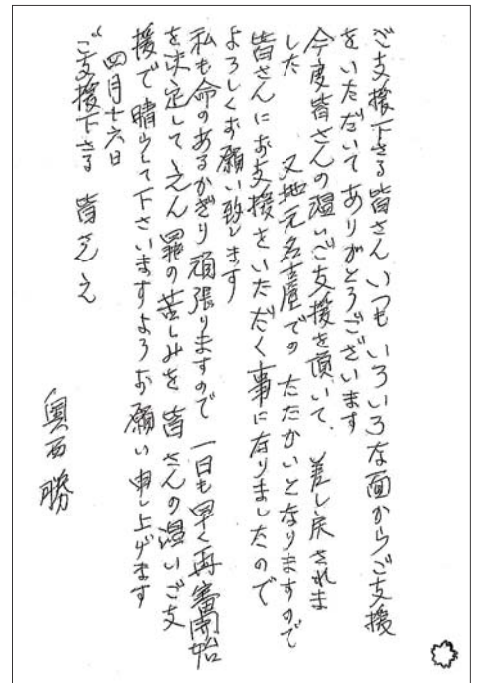 ご支援下さる皆さん いつも いろいろな面からご支援
をいただいてありがとうございます
今度皆さんの温いご支援を頂いて、差し戻されま
した 又地元名古屋での たたかいとなりますので
皆さんにお支援をいただく事になりましたので
よろしくお願い致します
私も命のあるかぎり頑張りますので 一日も早く再審開始
を決定して えん罪の苦しみを 皆さんの温いご支
援で晴らして下さいますよろお願い申し上げます
四月十六日
ご支援下さる 皆さんえ
奥西勝